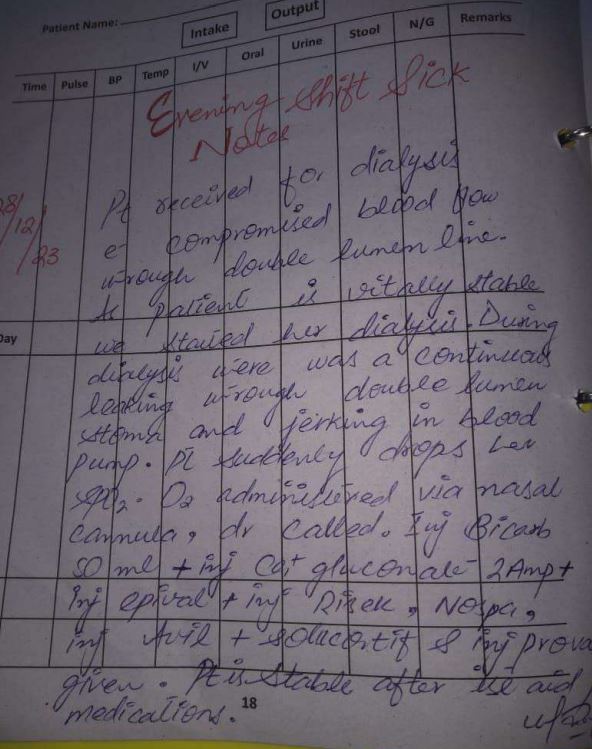 Patient Name:
Intake Output
Time Pulse BP Temp I/V Oral Urine Stool N/G Remarks
Evening Shift Sick
Notes
28/12/23
Pt received for dialysis
c- compromised blood flow
through double lumen line.
As patient is vitally stable
Day
we started her dialysis. During
dialysis there was a continuous
leaking through double lumen
stoma and jerking in blood
pump. Pt suddenly drops her
SPO2. O2 administered via nasal
cannula, dr called. Inj Bicarb
50 ml + inj Ca+ gluconate 2 Amp +
Inj epival + inj Risek, Nospa,
inj Avil + solucortif & inj prova
given. Pt is stable after
medications.
18